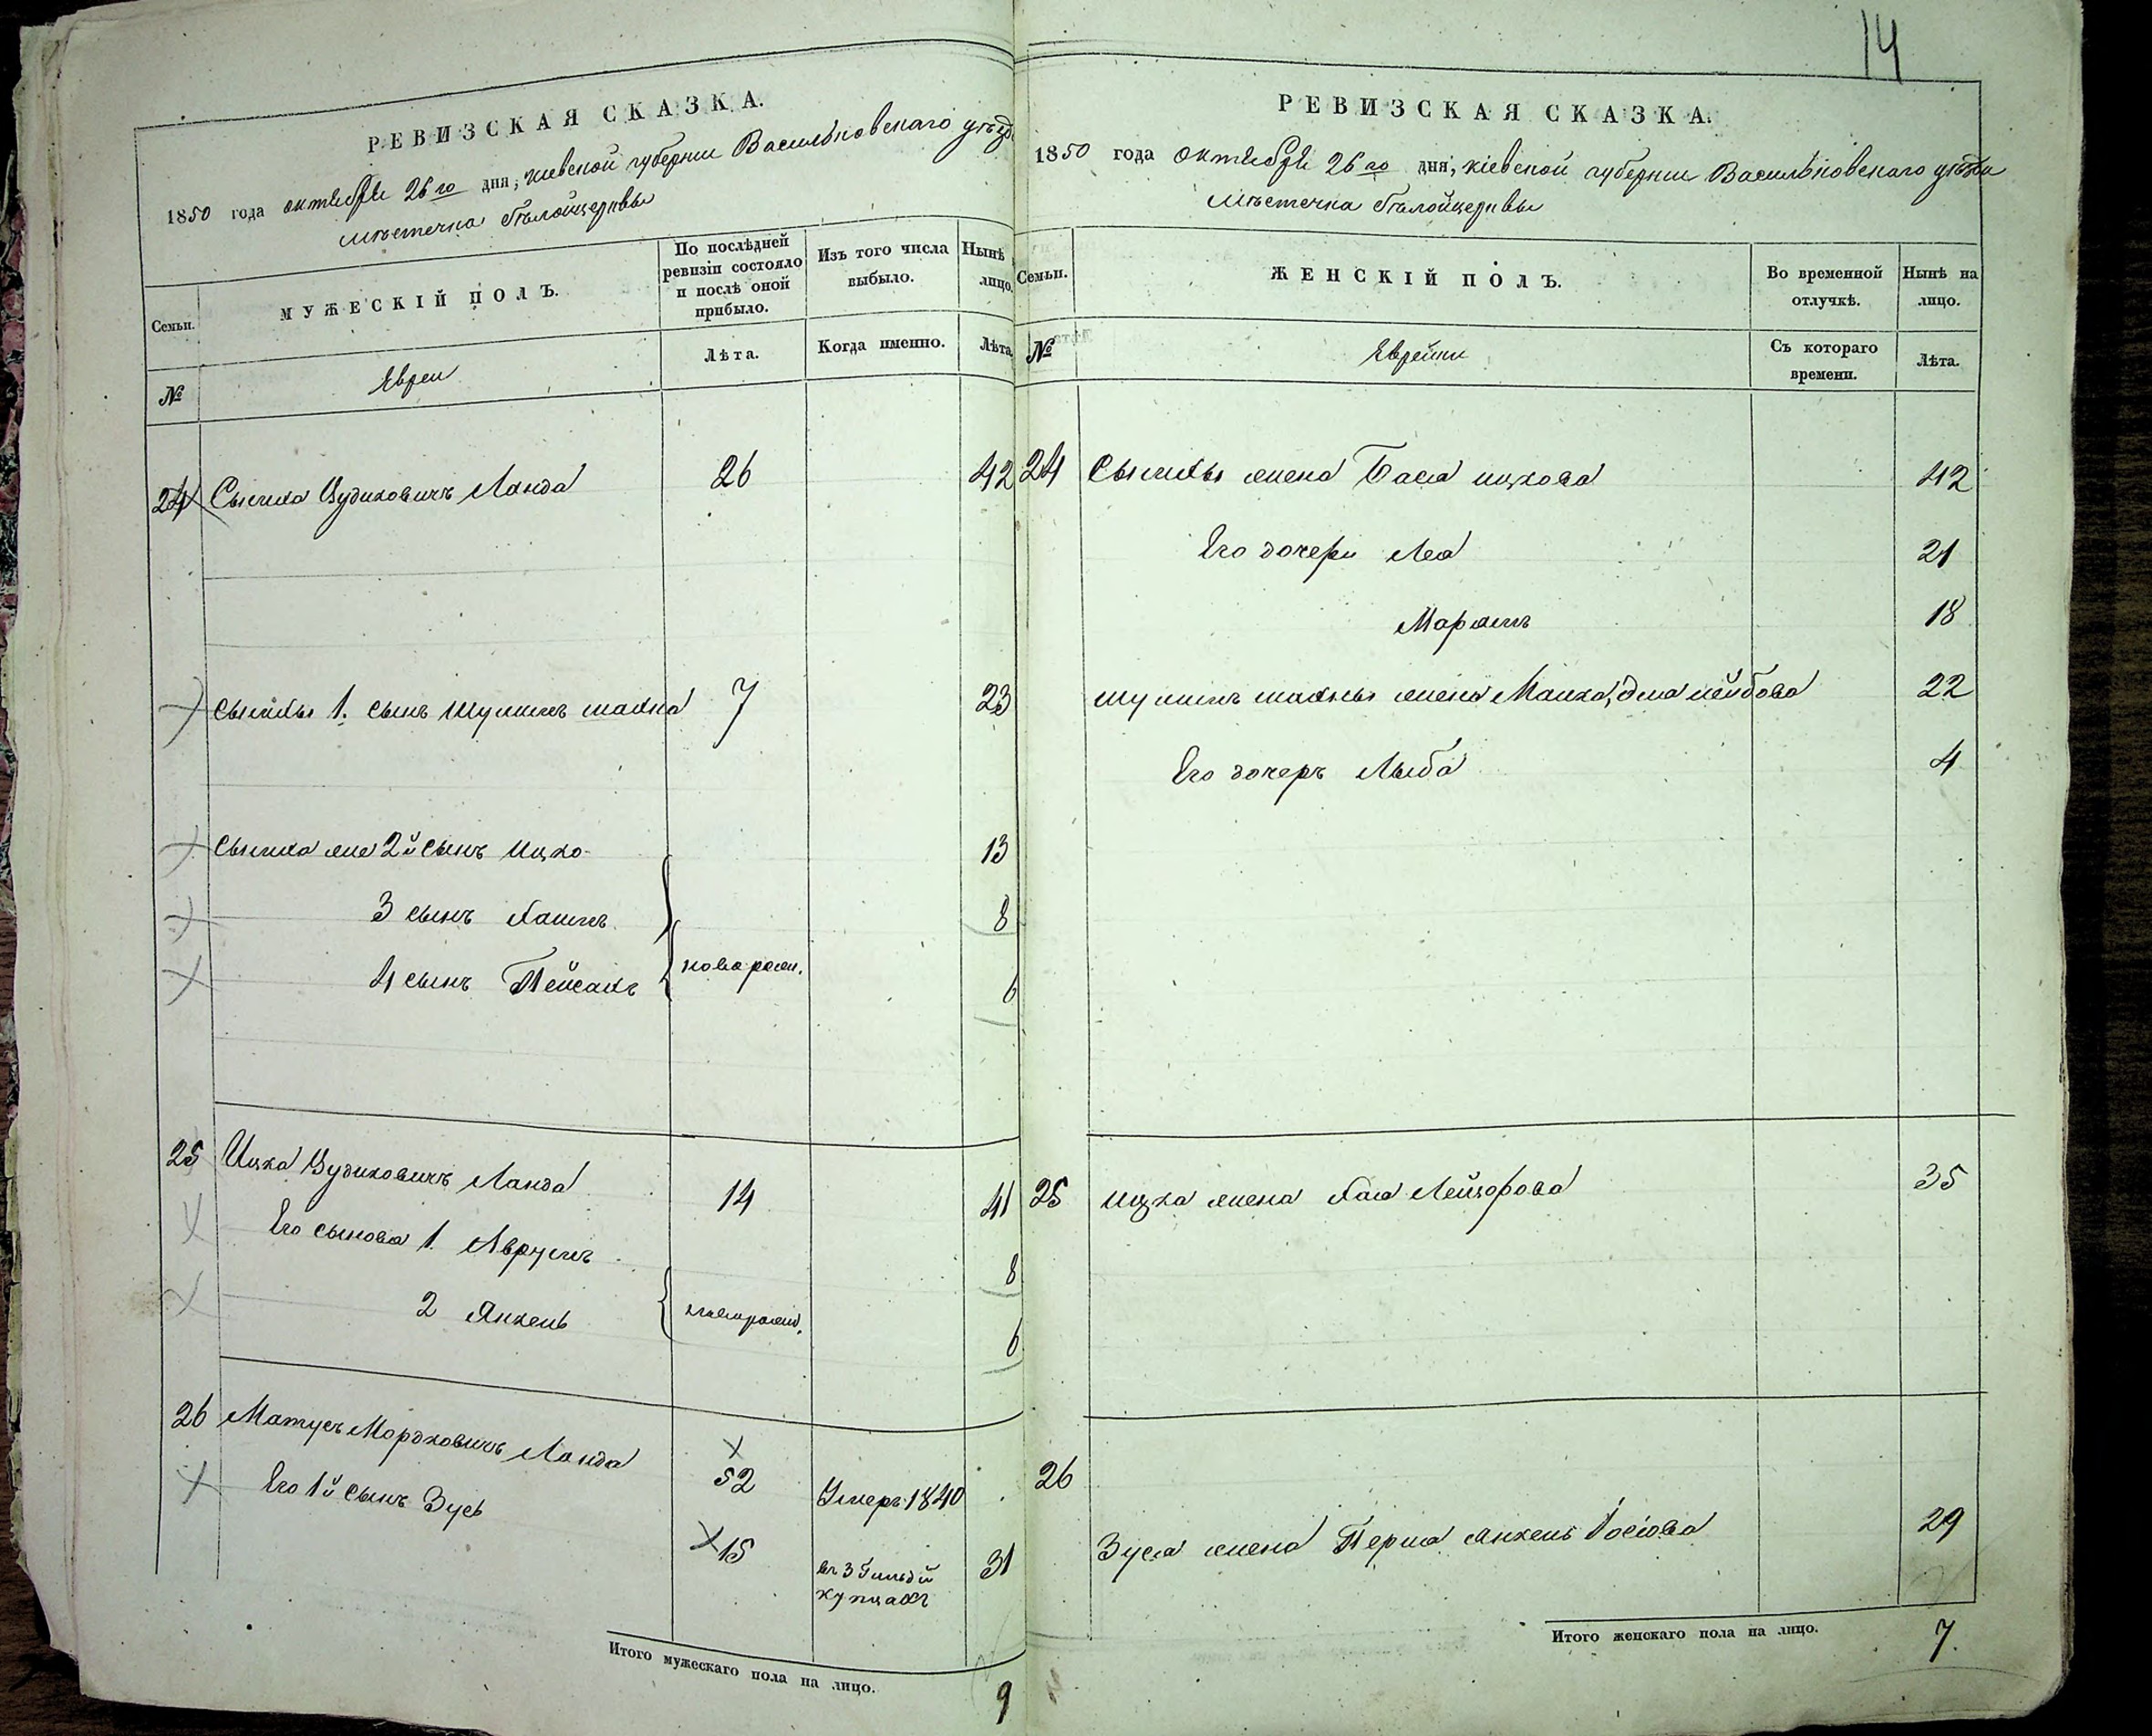 РЕВИЗСКАЯ СКАЗКА.
1850 года октября 26го дня, Кіевской губерніи Васильковскаго уѣзд
мѣстечка Бѣлойцеркви
Семьи.
МУЖЕСКІЙ ПОЛЪ.
По послѣдней ревизіи состояло и послѣ оной прибыло.
Изъ того числа выбыло.
Нынѣ лицо.
№
Евреи
Лѣта.
Когда именно.
Лѣта
24 Сымха Іудиковичъ Ланда 26 42
Сымхы 1. сынъ Шулимъ шахна 7 23
Сымха же 2й сынъ Ицко 13
3 сынъ Хаимъ 8
4 сынъ Пейсахъ новорожд. 6
25 Ицка Іудиковичъ Ланда 14 41
Его сынова 1. Аврумъ 8
2 Янкель новорожд. 6
26 Матусъ Мордковичъ Ланда 52 Умеръ 1840
Его 1й сынъ Зусь 15 въ 3 Гильдій купцахъ 31
Итого мужескаго пола на лицо. 9
14
РЕВИЗСКАЯ СКАЗКА.
1850 года октября 26го дня, Кіевской губерніи Васильковскаго уѣзда
мѣстечка Бѣлойцеркви
Семьи.
ЖЕНСКІЙ ПОЛЪ.
Во временной отлучкѣ.
Нынѣ на лицо.
№
Еврейки
Съ котораго времени.
Лѣта.
24 Сымхы жена Бася ицкова 42
Его дочери Леа 21
Марямъ 18
шулимъ шахны жена Малка, лейбова 22
Его дочерь Лыба 4
25 ицка жена Хая Лейзорова 35
26
Зуся жена Перла Янкель Іосіова 29
Итого женскаго пола на лицо. 7.